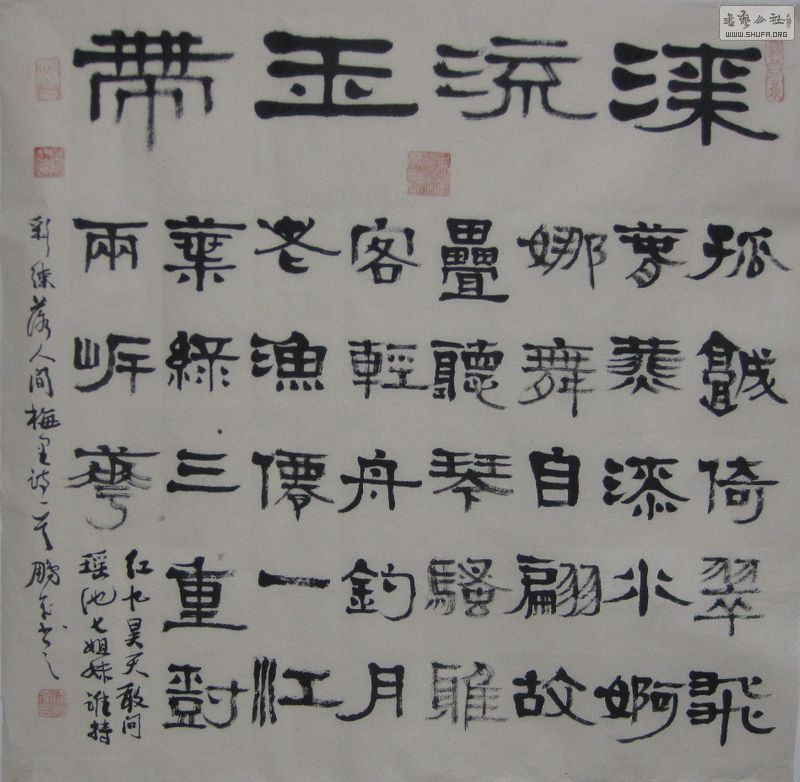 流玉帶
孤倚翠飛
水婀
娜舞自翩故
疊聽琴騷雅
客輕舟釣月
老漁僊一江
葉綠三重對
兩岸華
紅九昊天敢問
瑤池七姐妹誰持
彩練落人間梅詩一鵬書之
書藝公社
WWW.SHUFA.ORG